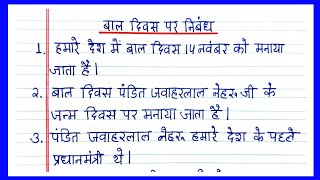 बाल दिवस पर निबंध
1. हमारे देश में बाल दिवस 14 नवंबर को मनाया
जाता है।
2. बाल दिवस पंडित जवाहरलाल नेहरू जी के
जन्म दिवस पर मनाया जाता है।
3. पंडित जवाहरलाल नेहरू हमारे देश के पहले
प्रधानमंत्री थे।